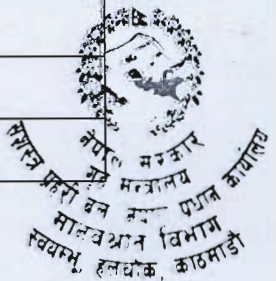 नेपाल सरकार
गृह मन्त्रालय
सशस्त्र प्रहरी बल नेपाल प्रधान कार्यालय
मानवश्रोत विभाग
स्वयम्भू, हलचोक, काठमाडौं